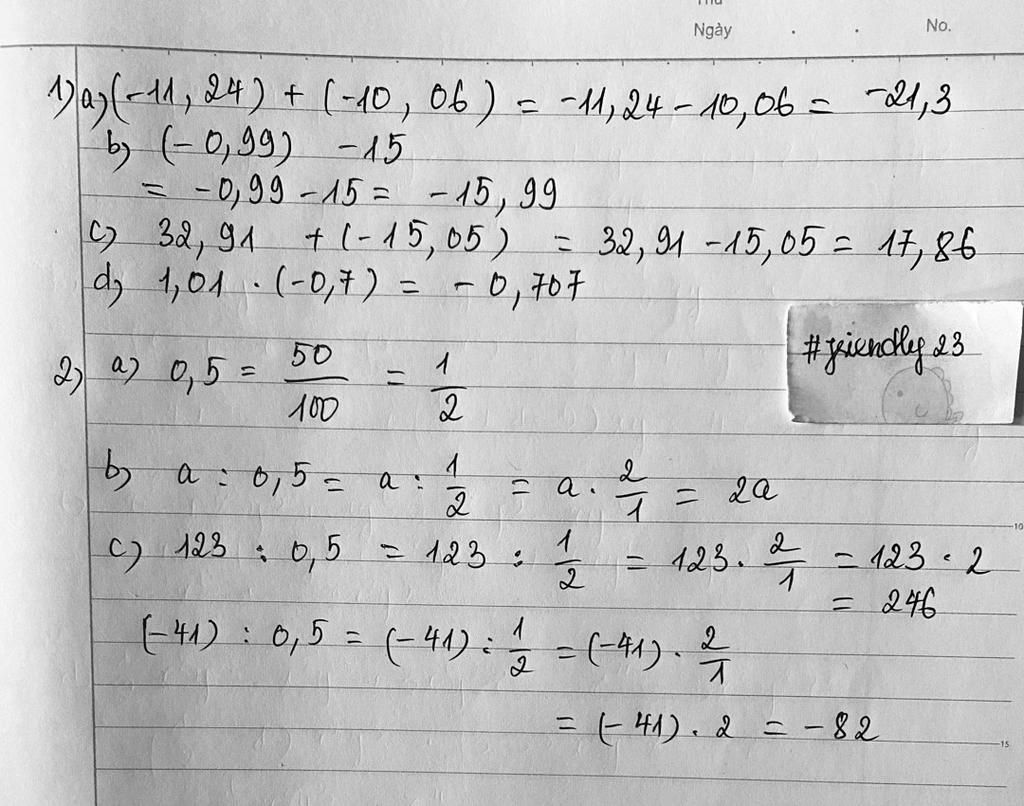 Thứ
Ngày . . No.
1) a) (-11,24) + (-10,06) = -11,24 - 10,06 = -21,3
b) (-0,99) -15
= -0,99 - 15 = -15,99
c) 32,91 + (-15,05) = 32,91 - 15,05 = 17,86
d) 1,01 . (-0,7) = -0,707
#friendly 23
2) a) 0,5 = 50/100 = 1/2
b) a : 0,5 = a : 1/2 = a . 2/1 = 2a
10
c) 123 : 0,5 = 123 : 1/2 = 123 . 2/1 = 123 . 2
= 246
(-41) : 0,5 = (-41) : 1/2 = (-41) . 2/1
= (-41) . 2 = -82
15